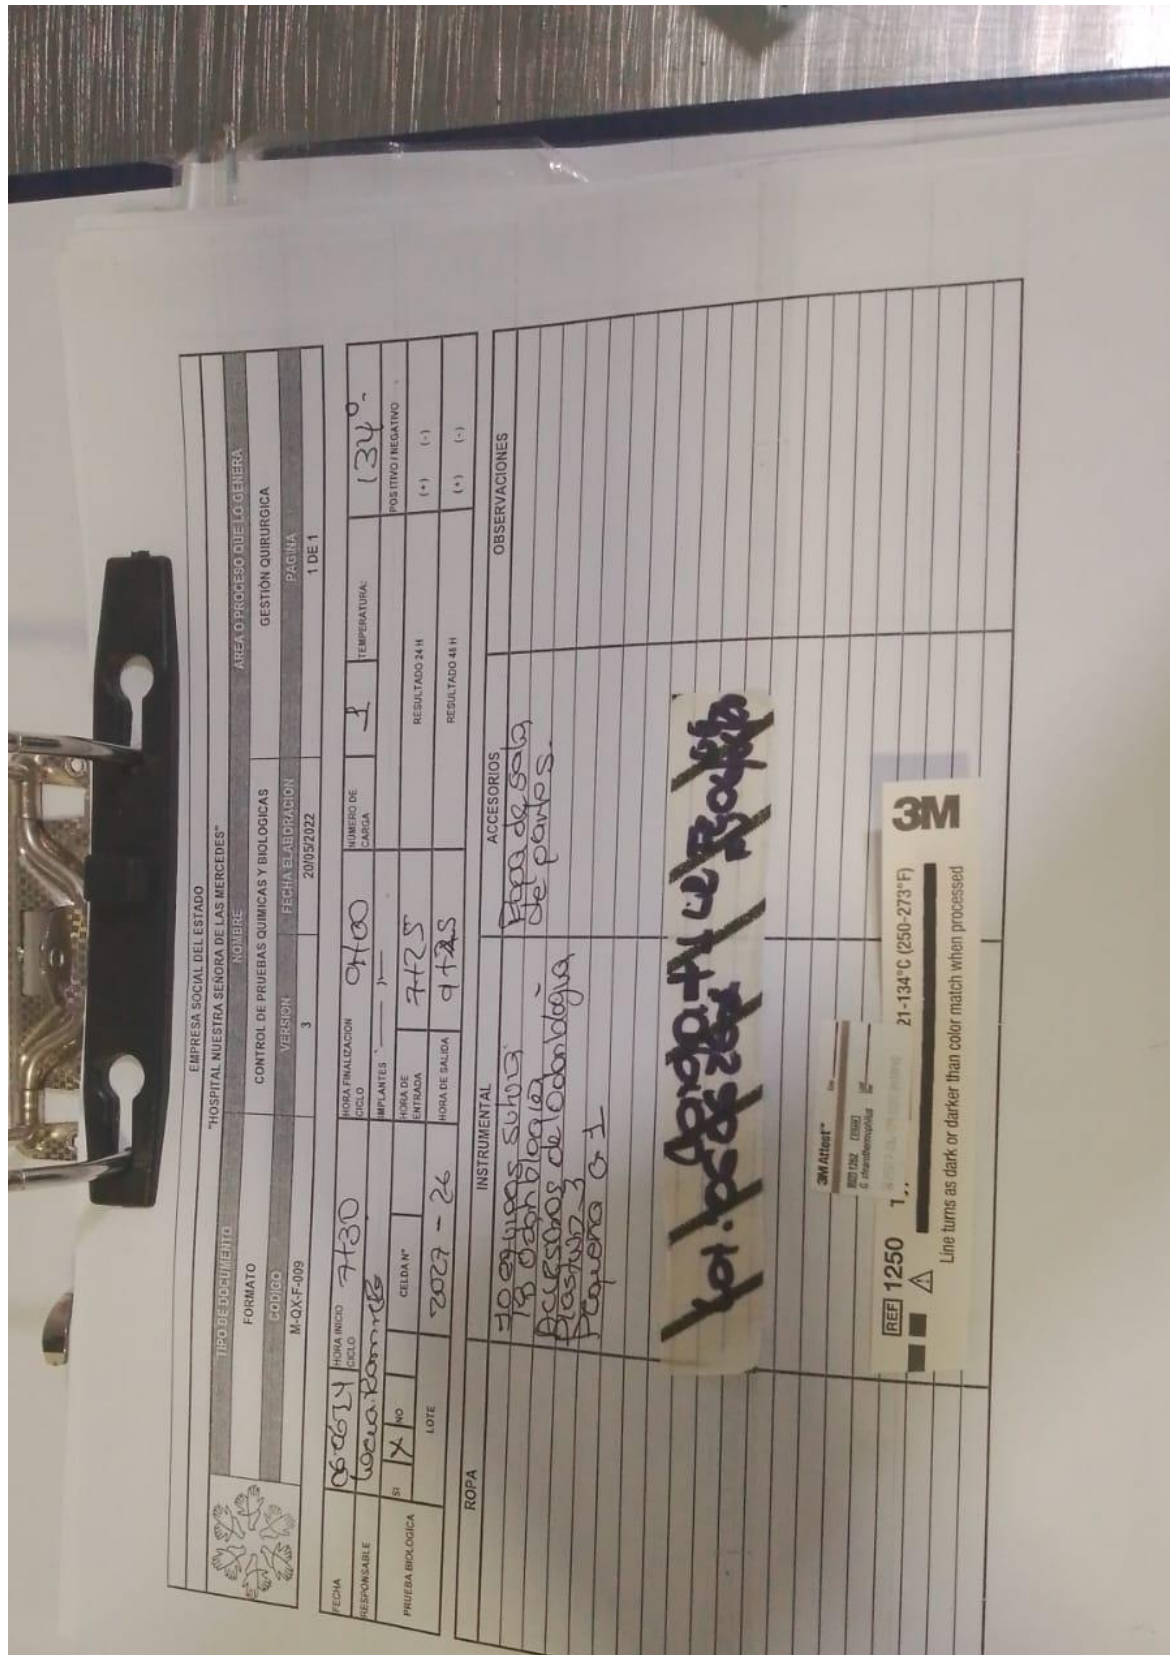 EMPRESA SOCIAL DEL ESTADO
"HOSPITAL NUESTRA SEÑORA DE LAS MERCEDES"
TIPO DE DOCUMENTO NOMBRE AREA O PROCESO QUE LO GENERA
FORMATO CONTROL DE PRUEBAS QUIMICAS Y BIOLOGICAS GESTIÓN QUIRURGICA
CODIGO VERSION FECHA ELABORACION PAGINA
M-QX-F-009 3 20/05/2022 1 DE 1
FECHA 06-06 24 HORA INICIO CICLO 7+30 HORA FINALIZACION CICLO 9+00 NÚMERO DE CARGA 1 TEMPERATURA: 134°
RESPONSABLE IMPLANTES
PRUEBA BIOLOGICA SI X NO CELDA N° HORA DE ENTRADA 7+25 POSITIVO / NEGATIVO
RESULTADO 24 H (+) (-)
LOTE 2027 - 26 HORA DE SALIDA RESULTADO 48 H (+) (-)
ROPA INSTRUMENTAL ACCESORIOS OBSERVACIONES
10 equipos sutura Ropa de sala
de partos.
de odontologia
3
Pequeña 1
3M Attest™
REF 1262
G. stearothermophilus
3M
REF 1250 21-134°C (250-273°F)
Line turns as dark or darker than color match when processed